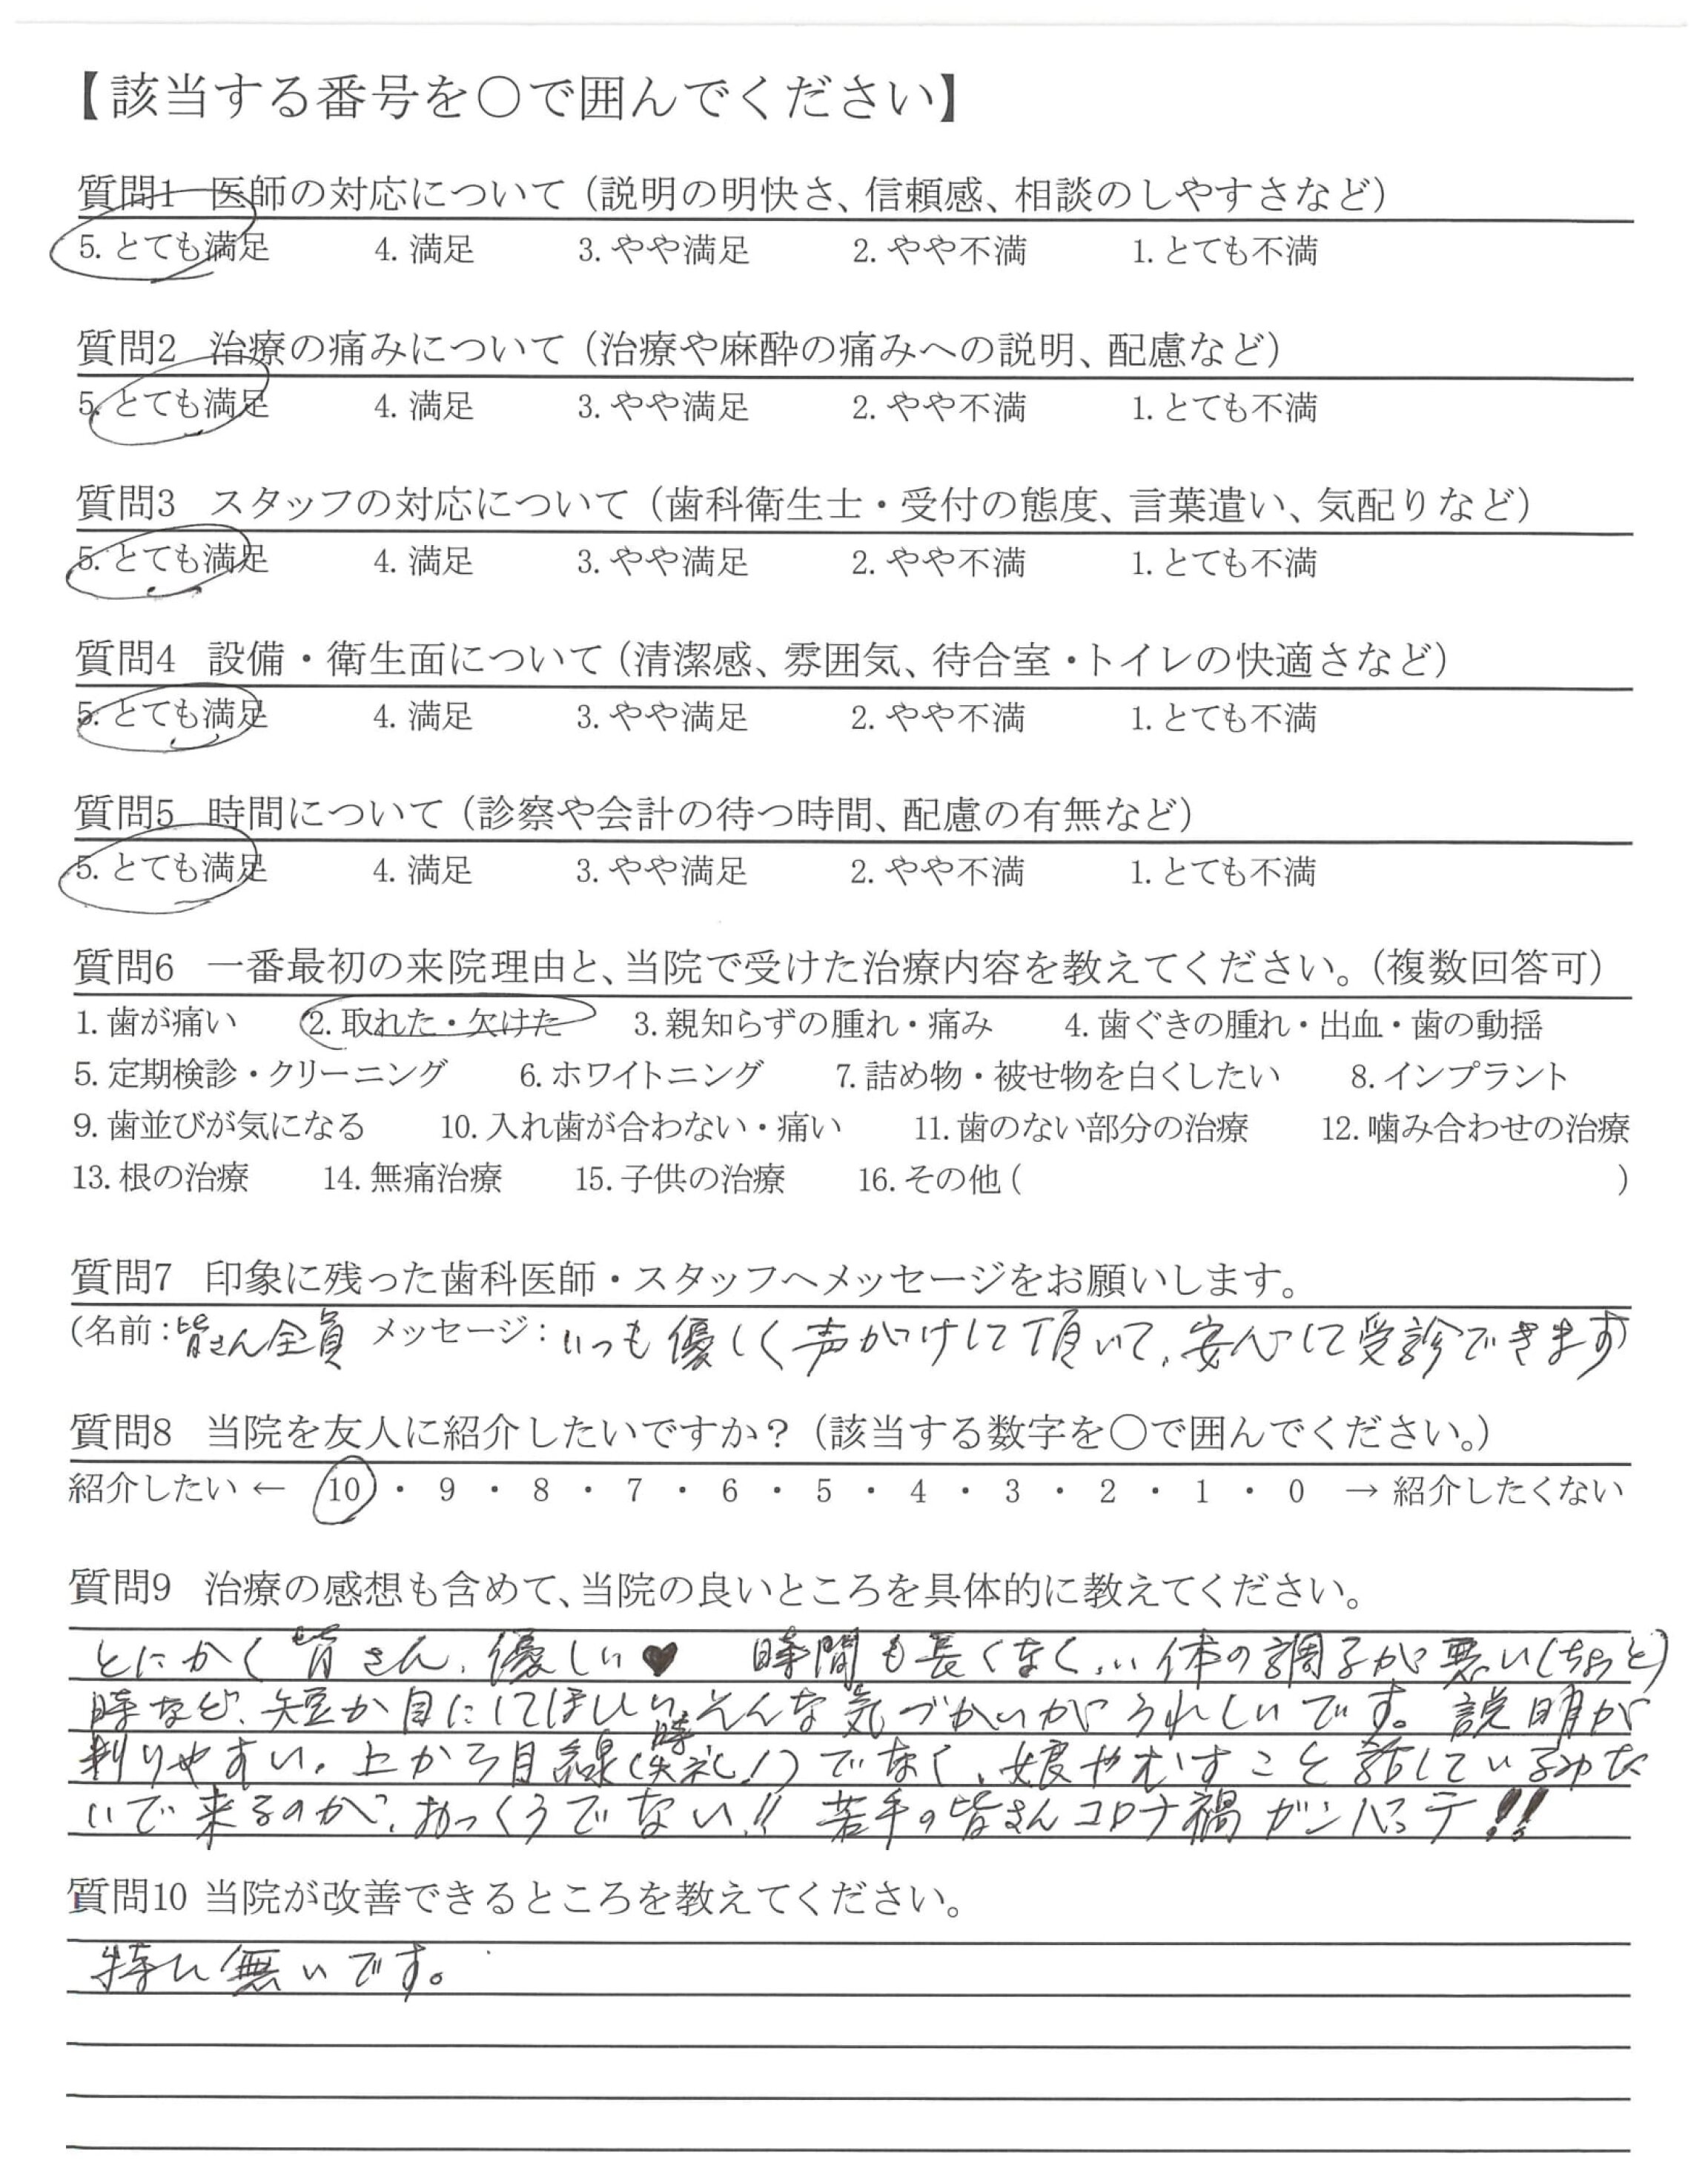 【該当する番号を〇で囲んでください】
質問1 医師の対応について（説明の明快さ、信頼感、相談のしやすさなど）
5. とても満足 4. 満足 3. やや満足 2. やや不満 1. とても不満
質問2 治療の痛みについて（治療や麻酔の痛みへの説明、配慮など）
5. とても満足 4. 満足 3. やや満足 2. やや不満 1. とても不満
質問3 スタッフの対応について（歯科衛生士・受付の態度、言葉遣い、気配りなど）
5. とても満足 4. 満足 3. やや満足 2. やや不満 1. とても不満
質問4 設備・衛生面について（清潔感、雰囲気、待合室・トイレの快適さなど）
5. とても満足 4. 満足 3. やや満足 2. やや不満 1. とても不満
質問5 時間について（診察や会計の待つ時間、配慮の有無など）
5. とても満足 4. 満足 3. やや満足 2. やや不満 1. とても不満
質問6 一番最初の来院理由と、当院で受けた治療内容を教えてください。（複数回答可）
1. 歯が痛い 2. 取れた・欠けた 3. 親知らずの腫れ・痛み 4. 歯ぐきの腫れ・出血・歯の動揺
5. 定期検診・クリーニング 6. ホワイトニング 7. 詰め物・被せ物を白くしたい 8. インプラント
9. 歯並びが気になる 10. 入れ歯が合わない・痛い 11. 歯のない部分の治療 12. 噛み合わせの治療
13. 根の治療 14. 無痛治療 15. 子供の治療 16. その他（ ）
質問7 印象に残った歯科医師・スタッフへメッセージをお願いします。
（名前：皆さん全員 メッセージ：いつも優しく声がけして頂いて、安心して受診できます）
質問8 当院を友人に紹介したいですか？（該当する数字を〇で囲んでください。）
紹介したい ← 10 ・ 9 ・ 8 ・ 7 ・ 6 ・ 5 ・ 4 ・ 3 ・ 2 ・ 1 ・ 0 → 紹介したくない
質問9 治療の感想も含めて、当院の良いところを具体的に教えてください。
とにかく皆さん、優しい♥ 時間も長くなく、体の調子が悪い(ちょっと)
時など、短か目にしてほしい時、そんな気づかいがうれしいです。説明が
判りやすい。上から目線(失礼!)でなく、娘やむすこと話しているみた
いで来るのが、おっくうでない!! 若手の皆さんコロナ禍ガンバッテ!!
質問10 当院が改善できるところを教えてください。
特に無いです。